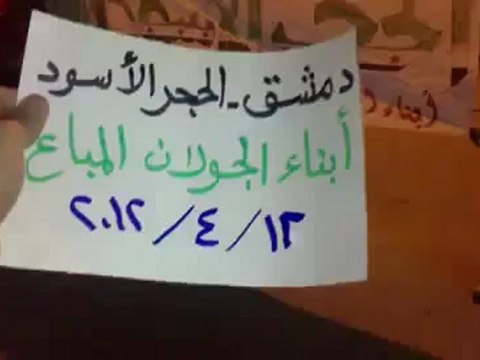 دمشق - الحجر الأسود
أبناء الجولان المباع
٢٠١٢/٤/١٣
أبناء